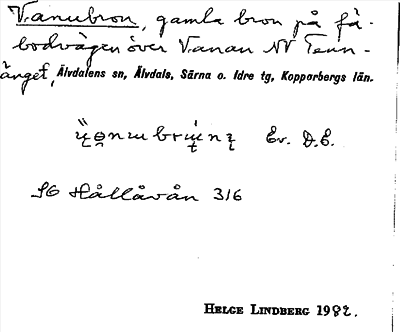 Vanubron, gamla bron på fä-
bodvägen över Vanan NV Tenn-
änget, Älvdalens sn, Älvdals, Särna o. Idre tg, Kopparbergs län.
Ev. D.E.
SO Hållåvån 316
HELGE LINDBERG 1982.